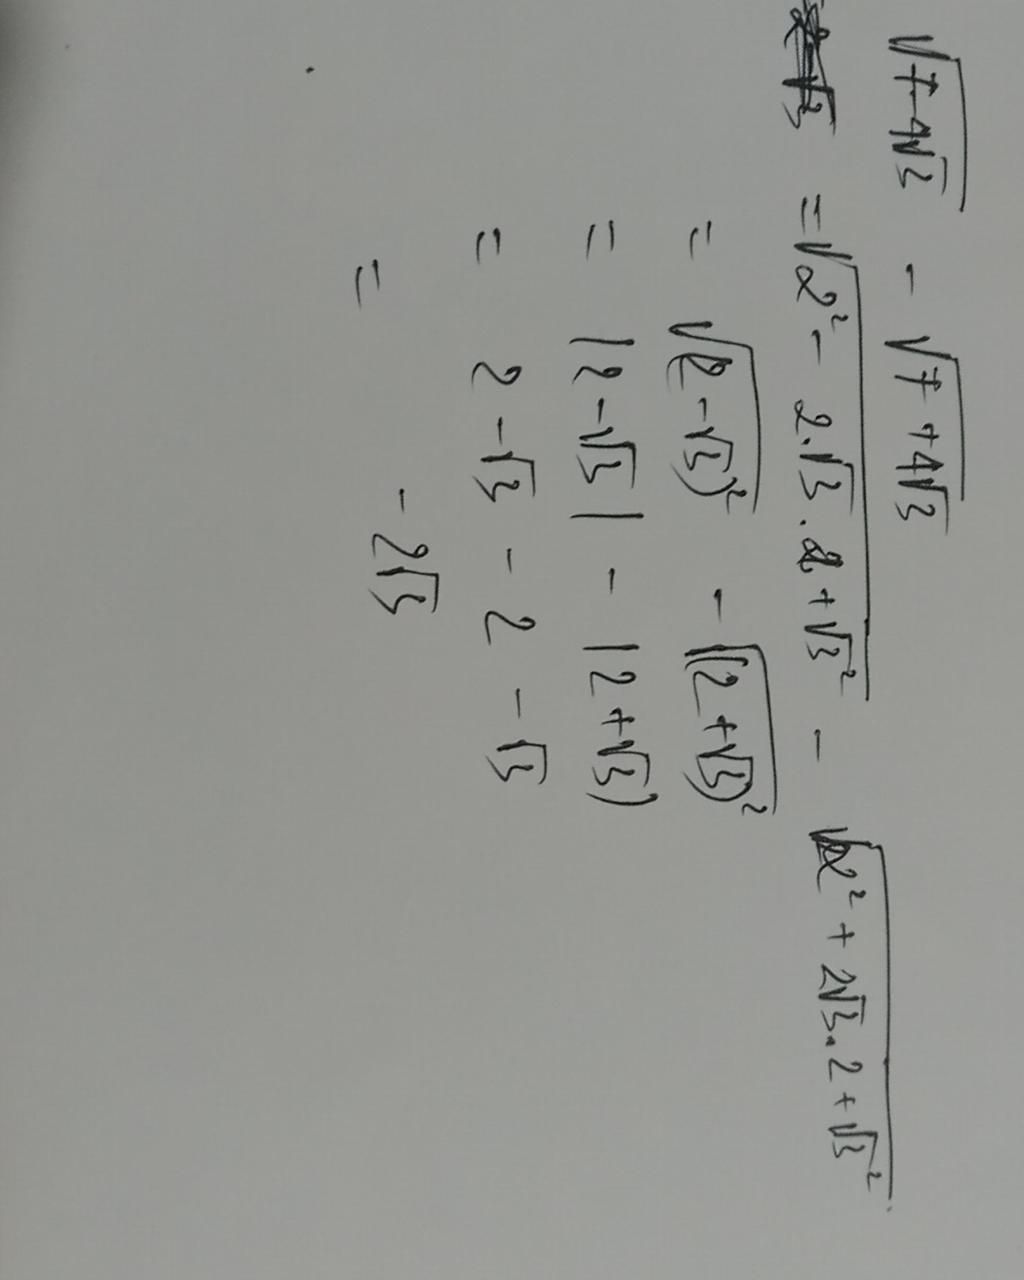 √(7-4√3) - √(7+4√3)
= √(2² - 2.√3.2 + √3²) - √(2² + 2√3.2 + √3²)
= √(2-√3)² - √(2+√3)²
= |2-√3| - |2+√3)
= 2-√3 - 2 - √3
= - 2√3